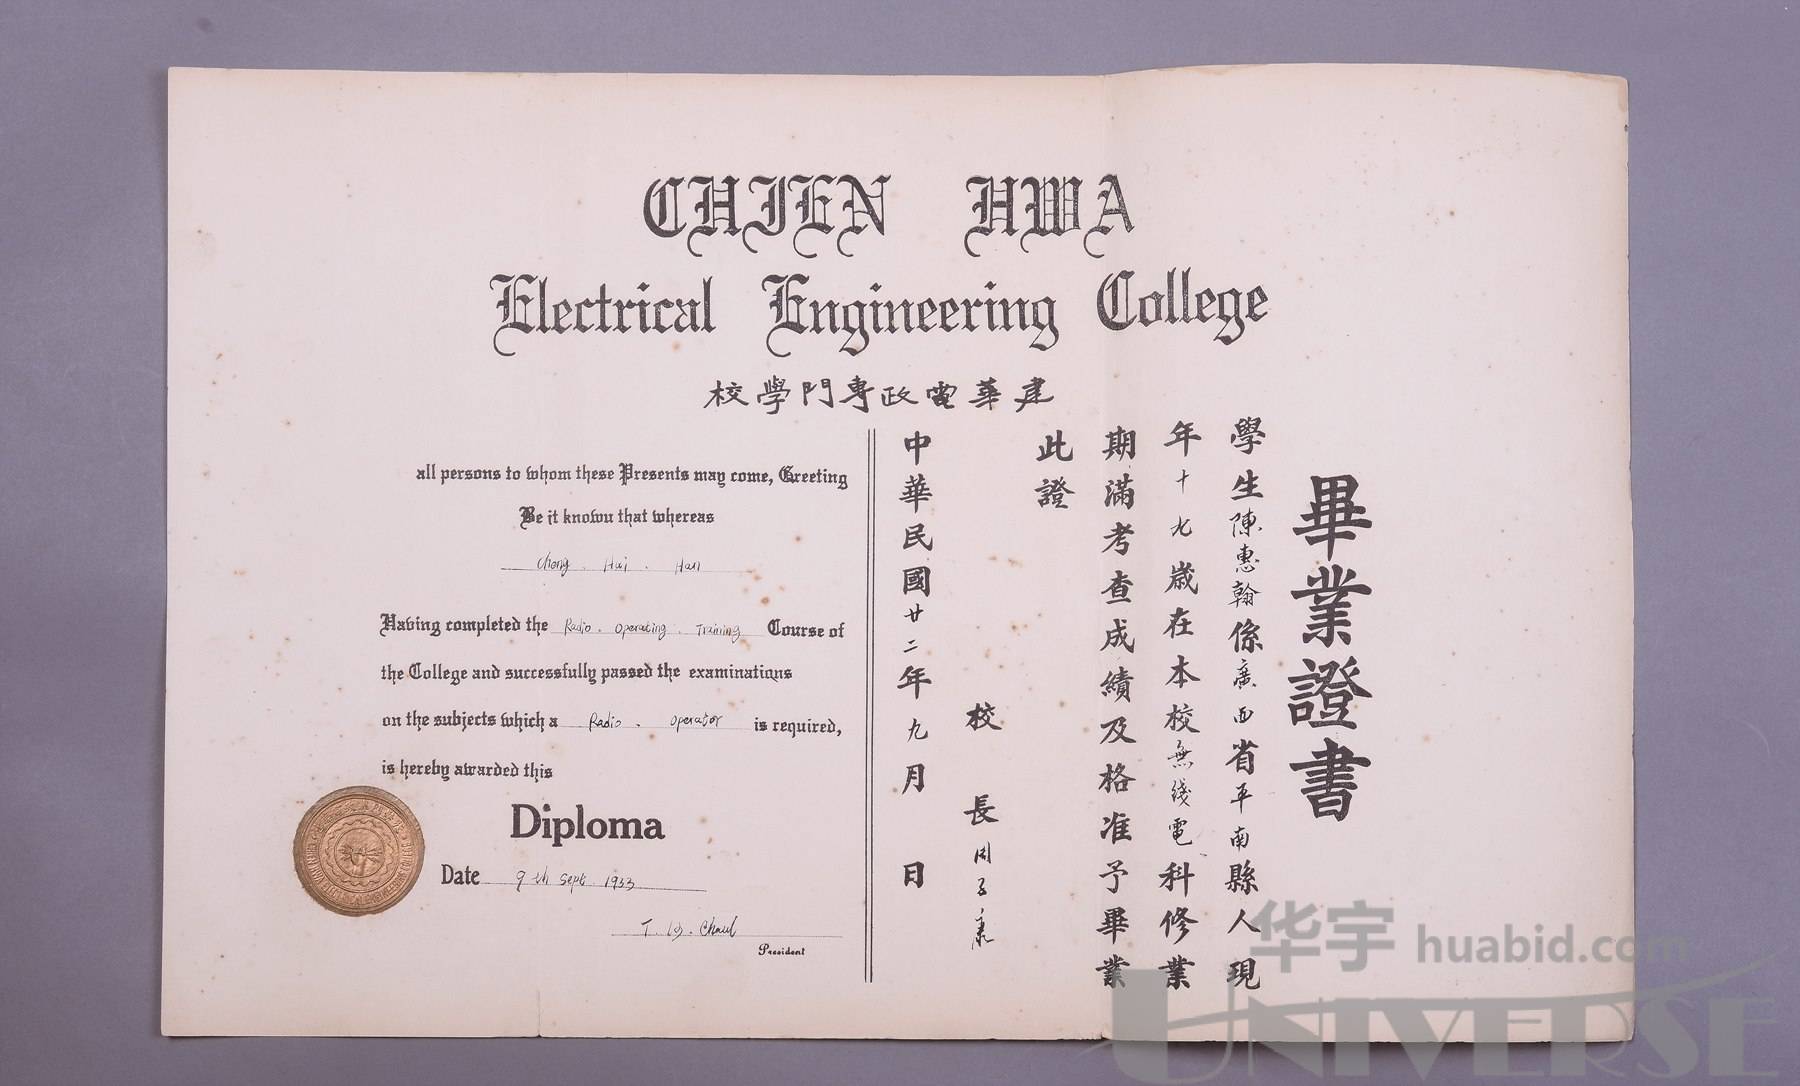 CHIEN HWA
Electrical Engineering College
校學門專政電華建
all persons to whom these Presents may come, Greeting
Be it knowu that whereas
Hui Han
Having completed the Radio Operating Training Course of
the College and successfully passed the examinations
on the subjects which a Radio Operator is required,
is hereby awarded this
Diploma
Date 9th Sept 1933
President
畢業證書
學生陳惠翰係廣西省平南縣人現
年十九歲在本校無綫電科修業
期滿考查成績及格准予畢業
此證
校長周子康
中華民國廿二年九月 日
华宇 huabid.com
UNIVERSE